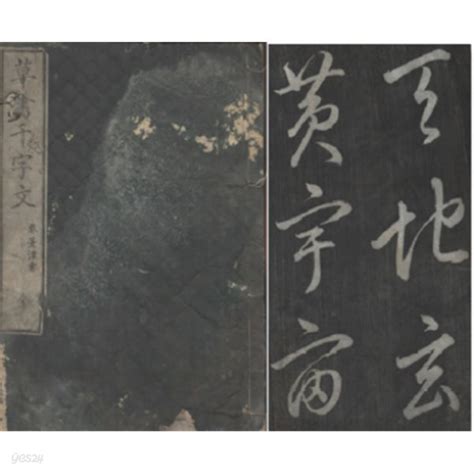 草書千字文
全
天地玄
黄宇宙
YES24